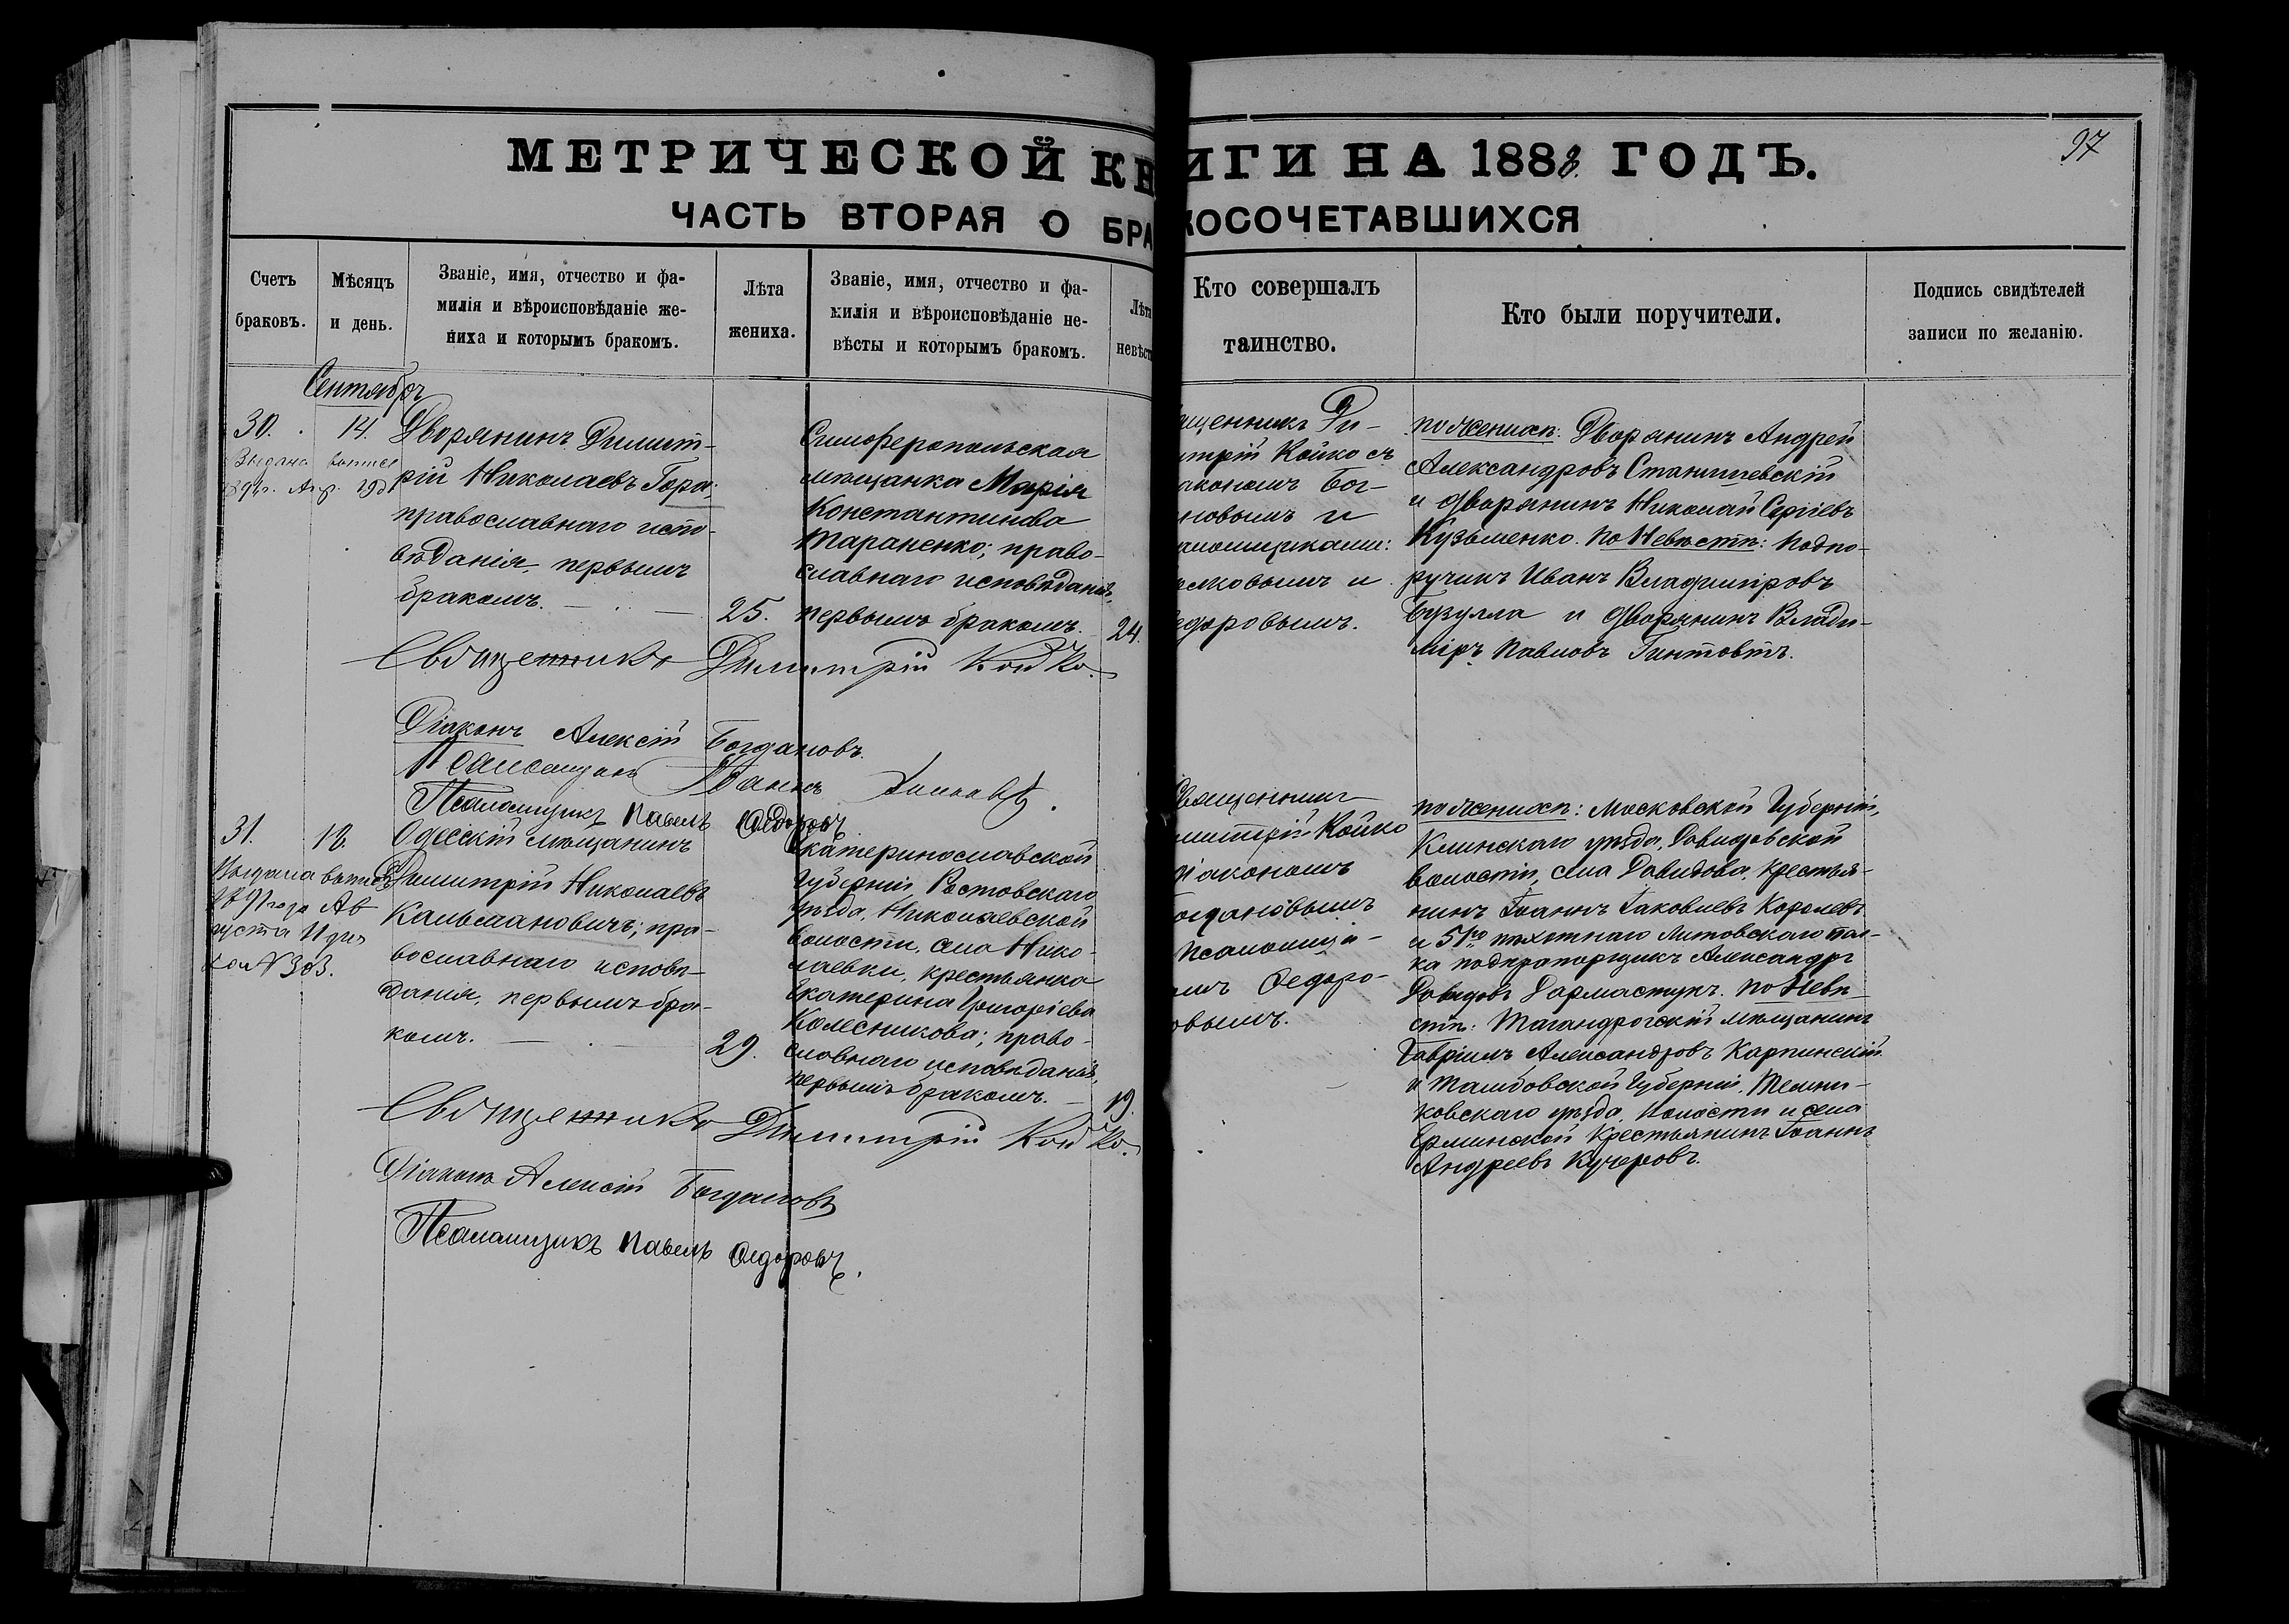 97
МЕТРИЧЕСКОЙ КН
ИГИ НА 1888 ГОДЪ.
ЧАСТЬ ВТОРАЯ О БРА
КОСОЧЕТАВШИХСЯ
Счетъ
браковъ.
Мѣсяцъ
и день.
Званіе, имя, отчество и фа-
милія и вѣроисповѣданіе же-
ниха и которымъ бракомъ.
Лѣта
жениха.
Званіе, имя, отчество и фа-
милія и вѣроисповѣданіе не-
вѣсты и которымъ бракомъ.
Лѣта
невѣст
Кто совершалъ
таинство.
Кто были поручители.
Подпись свидѣтелей
записи по желанію.
Сентябрь
30.
14.
Дворянинъ Димит-
рій Николаевъ Гора;
православнаго испо-
вѣданія, первымъ
бракомъ.
25.
Симферопольская
мѣщанка Марія
Константинова
Тараненко; право-
славнаго исповѣданія,
первымъ бракомъ.
24.
щенникъ Ди-
митрій Койко съ
акономъ Бог-
новымъ и
аломщиками:
и
едоровымъ.
по женихѣ: Дворянинъ Андрей
Александровъ Станишевскій
и дворянинъ Николай Сергіевъ
Кузьменко. По Невѣстѣ: Подпо-
ручикъ Иванъ Владиміровъ
и дворянинъ Влади-
міръ Павловъ Гинтовтъ.
Священникъ Димитрій Койко.
Діаконъ Алексій Богдановъ.
Псаломщикъ Иванъ
Псаломщикъ Павелъ Ѳедоровъ.
31.
18.
Выдана выпись
1891 года Ав
густа 11 дня
за № 303.
Одесскій мѣщанинъ
Димитрій Николаевъ
Кальмановичъ; пра-
вославнаго исповѣ-
данія, первымъ бра-
комъ.
29.
Екатеринославской
Губерніи, Ростовскаго
уѣзда, Николаевской
волости, села Нико-
лаевки, крестьянка
Екатерина Григоріева
Колесникова; право-
славнаго исповѣданія,
первымъ бракомъ.
19.
Священникъ
митрій Койко
діакономъ
огдановымъ
Псаломщи-
омъ Ѳедоро-
овымъ.
по женихѣ: Московской Губерніи,
Клинскаго уѣзда, Давидовской
волости, села Давидова, крестья-
нинъ Іоаннъ Іаковлевъ Королевъ
и 51го пѣхотнаго Литовскаго пол-
ка подпрапорщикъ Александръ
Давидовъ Дармастукъ. По Невѣ-
стѣ: Таганрогскій мѣщанинъ
Гавріилъ Александровъ Карпинскій
и Тамбовской Губерніи, Темни-
ковскаго уѣзда, волости и села
крестьянинъ Іоаннъ
Андреевъ Кучеровъ.
Священникъ Димитрій Койко.
Діаконъ Алексій Богдановъ
Псаломщикъ Павелъ Ѳедоровъ.